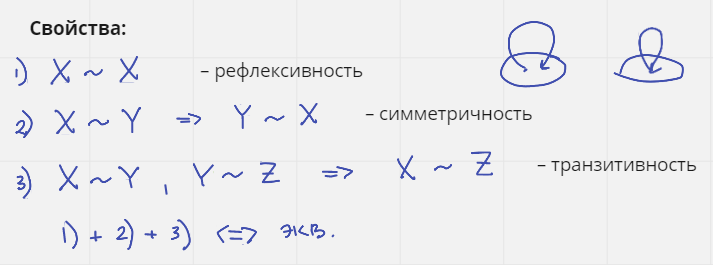 Свойства:
1) X ~ X – рефлексивность
2) X ~ Y => Y ~ X – симметричность
3) X ~ Y , Y ~ Z => X ~ Z – транзитивность
1) + 2) + 3) <=> экв.